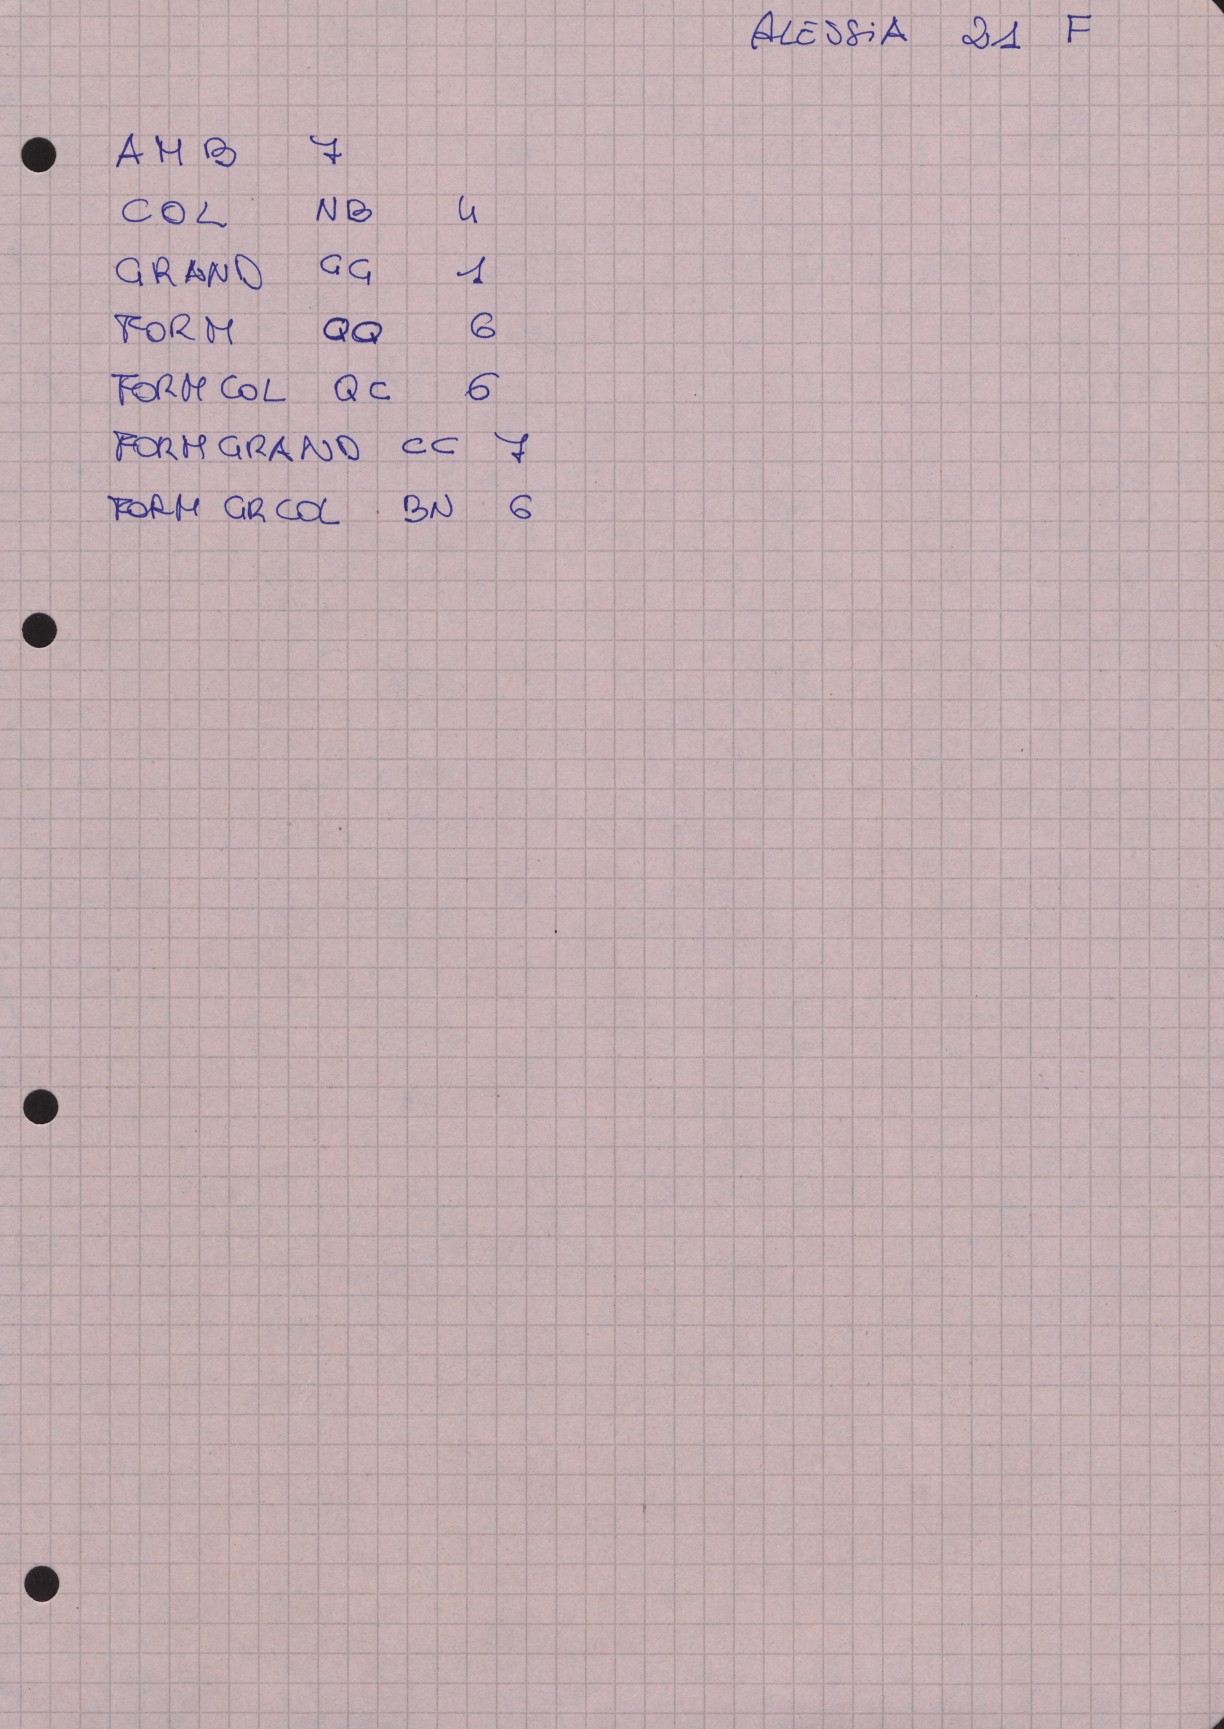 ALESSIA 21 F
AMB 7
COL NB 4
GRAND GG 1
FORM QQ 6
FORM COL QC 6
FORM GRAND CC 7
FORM GR COL BN 6